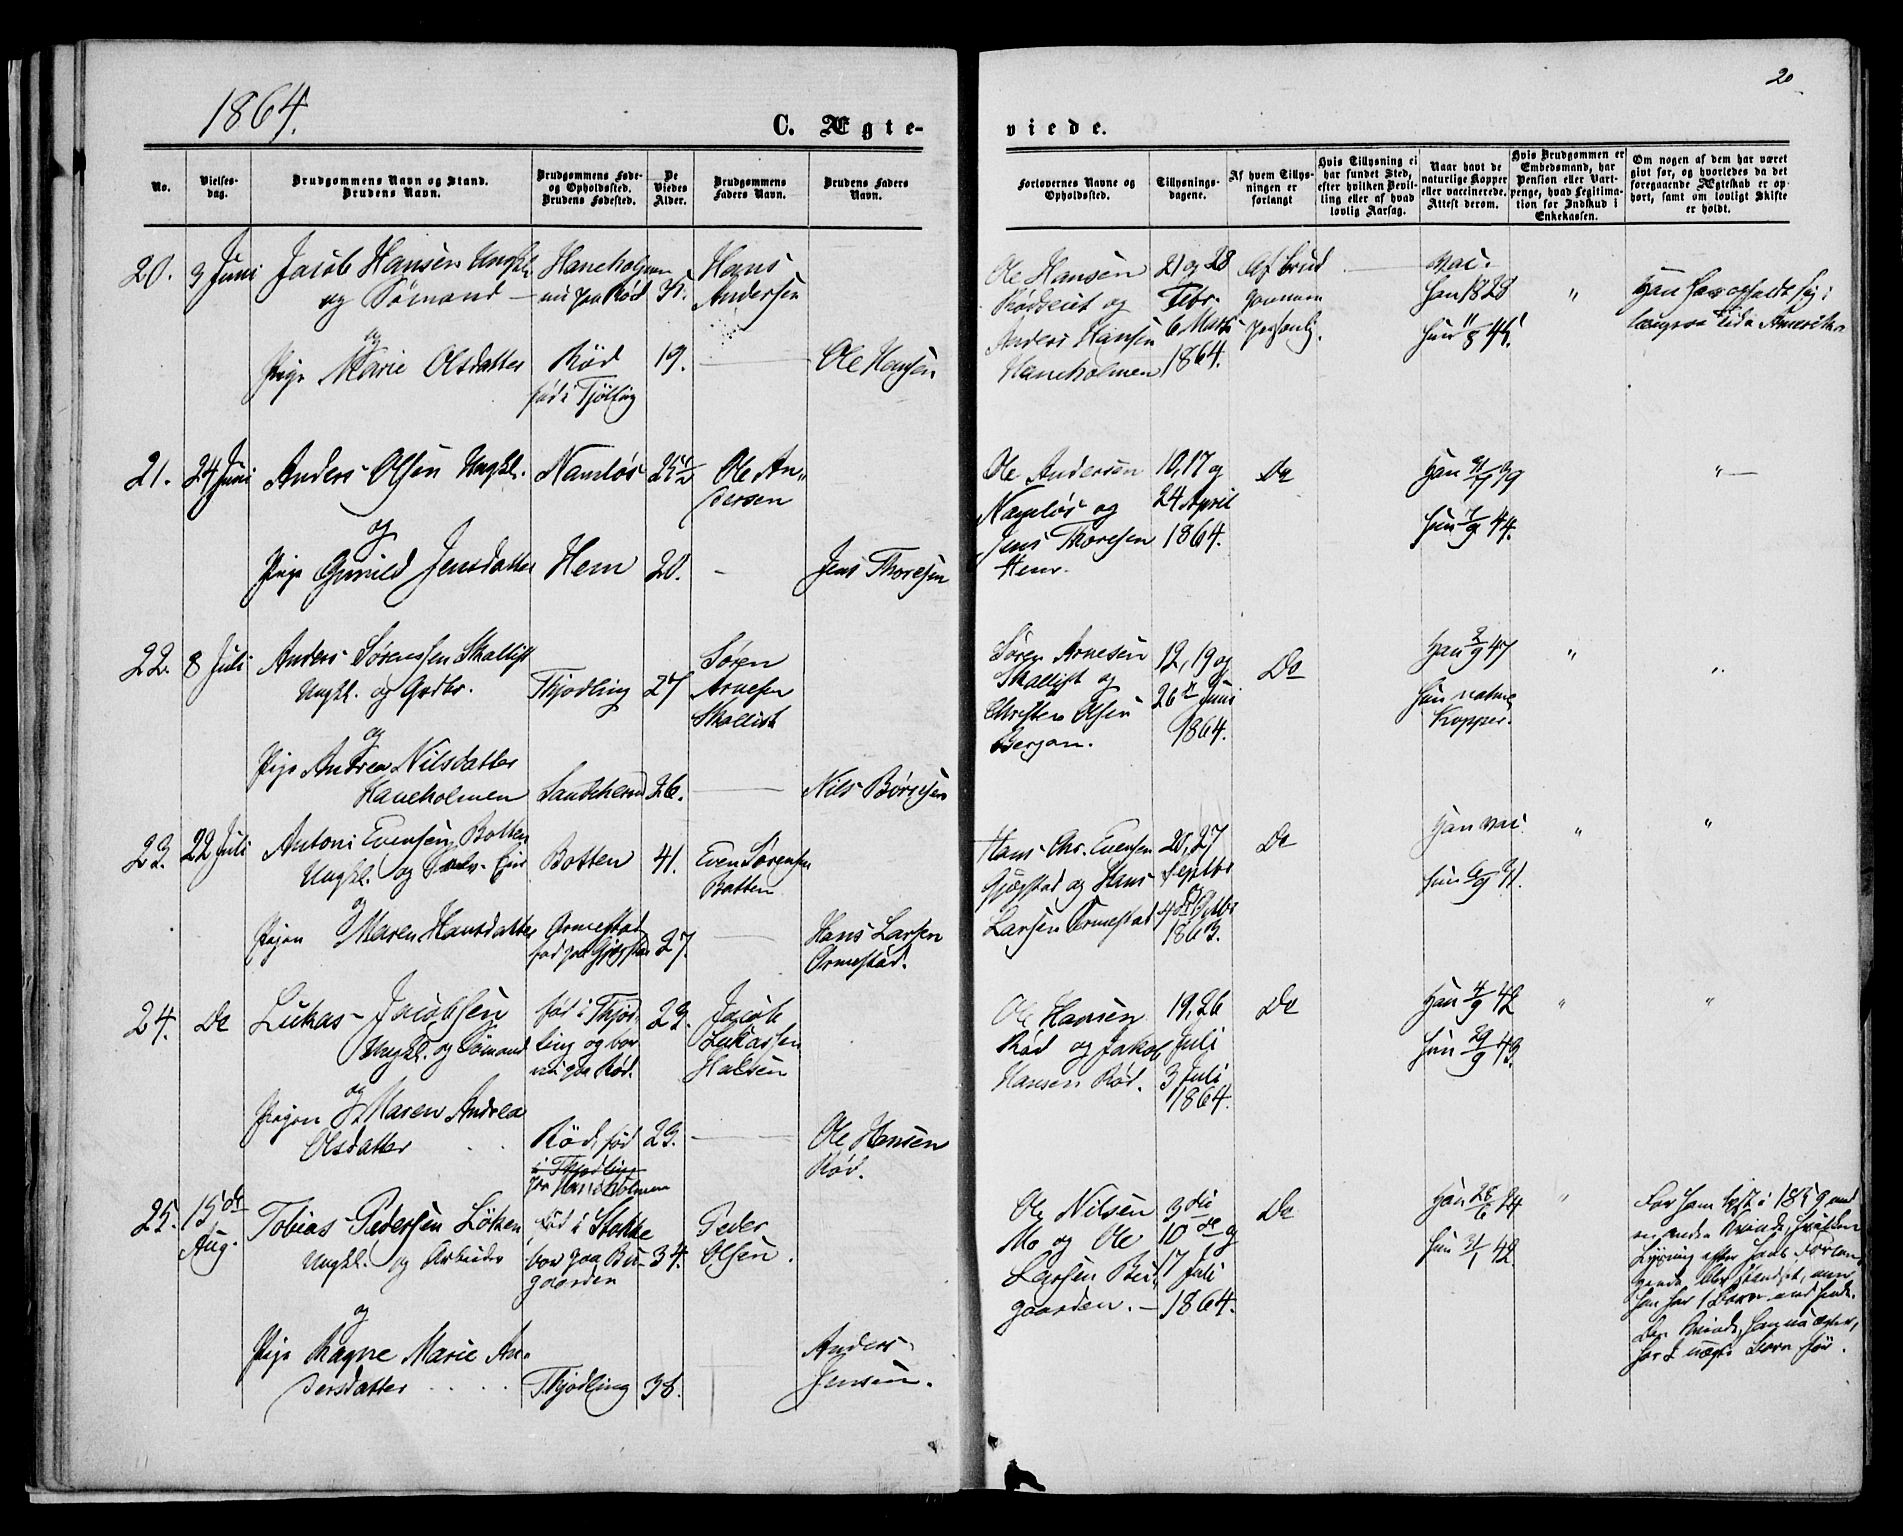 1864.
20
C. Ægte-
viede.
No.
Vielses-
dag.
Brudgommens Navn og Stand.
Brudens Navn.
Brudgommens Føde-
og Opholdssted.
Brudens Fødested.
De
Viedes
Alder.
Brudgommens
Faders Navn.
Brudens Faders
Navn.
Forlovernes Navne og
Opholdssted.
Tillysnings-
dagene.
Af hvem Tillys-
ningen er
forlangt
Hvis Tillysning ei
har fundet Sted,
efter hvilken Bevil-
ling eller af hvad
lovlig Aarsag.
Naar havt de
naturlige Kopper
eller vaccinerede.
Attest derom.
Hvis Brudgommen er
Embedsmand, har
Pension eller Vart-
penge, hvad Legitima-
tion for Indskud i
Enkekassen.
Om nogen af dem har været
givt før, og hvorledes da det
foregaaende Ægteskab er op-
hørt, samt om lovligt Skifte
er holdt.
20.
3 Juni
Jacob Hansen Ungkl.
og Sømand
og
Pige Marie Olsdatter
Haneholmen
nu paa Rød
Rød
fød i Tjølling
35.
19.
Hans
Andersen
Ole Hansen
Ole Hansen
Rød og
Anders Hansen
Haneholmen
21 og 28
Febr.
6 Marts
1864.
Af Brud
gommen
personlig.
vac.
Han 1828
Han har opholdt sig i
Tid i Amerika
21.
24 Juni
Anders Olsen Ungkl.
og
Pige Gunild Jensdatter
Namløs
Hem
25 1/2
20.
Ole An-
dersen
Jens Thoresen
Ole Andersen
Namløs og
Jens Thoresen
Hem.
10, 17 og
24 April
1864.
Do
Hun 7/9 44.
22.
8 Juli
Anders Sørensen Skallist
Ungkl. og Grdbr.
og
Pige Andrea Nilsdatter
Haneholmen
Thjødling
Sandeherred
27
26.
Søren
Arnesen
Skallist
Nils Børresen
Søren Arnesen
Skallist og
Christen Olsen
Bergan.
12, 19 og
26 Juni
1864.
Do
Han 2/9 47
Hun naturl.
Kopper.
23.
22 Juli
Antoni Evensen Botten
Ungkl. og Selv-Eier
og
Pigen Maren Hansdatter
Botten
Ormestad
fød paa Gjøgstad
41.
27.
Even Sørensen
Botten
Hans Larsen
Ormestad.
Hans Chr. Evensen
Gjøgstad og Hans
Larsen Ormestad
20, 27
Septbr
4 Octbr
1863.
Do
Han vac.
24.
Do
Lukas Jacobsen
Ungkl. og Sømand
og
Pigen Maren Andrea
Olsdatter
fød i Thjød-
ling og bor
nu paa Rød.
Rød, fød
i Thjødling
paa Haneholmen
23.
23.
Jacob
Lukassen
Halsen
Ole Hansen
Rød.
Ole Hansen
Rød og Jakob
Hansen Rød.
19, 26
Juli
3 Juli
1864.
Do
Han 4/9 42
Hun 29/9 43.
25.
15de
Aug.
Tobias Pedersen Løken
Ungkl. og Arbeider
og
Pige Ragne Marie An-
dersdatter
Fød i Stokke
bor paa Bu-
gaarden
Thjødling
34.
38.
Peder
Olsen.
Anders
Jensen.
Ole Nilsen
Mo og Ole
Larsen Bu-
gaarden.
3die
10de og
17 Juli
1864.
Do
Han 26/6 44
Hun 31/1 42.
For ham lyst i 1859 med
en anden Kvinde, hvilken
Lysning efter hans Forlan-
gende blev standset, men
han har 1 Barn med hende.
Den Kvinde, han nu ægter,
har 2 uægte Børn før.